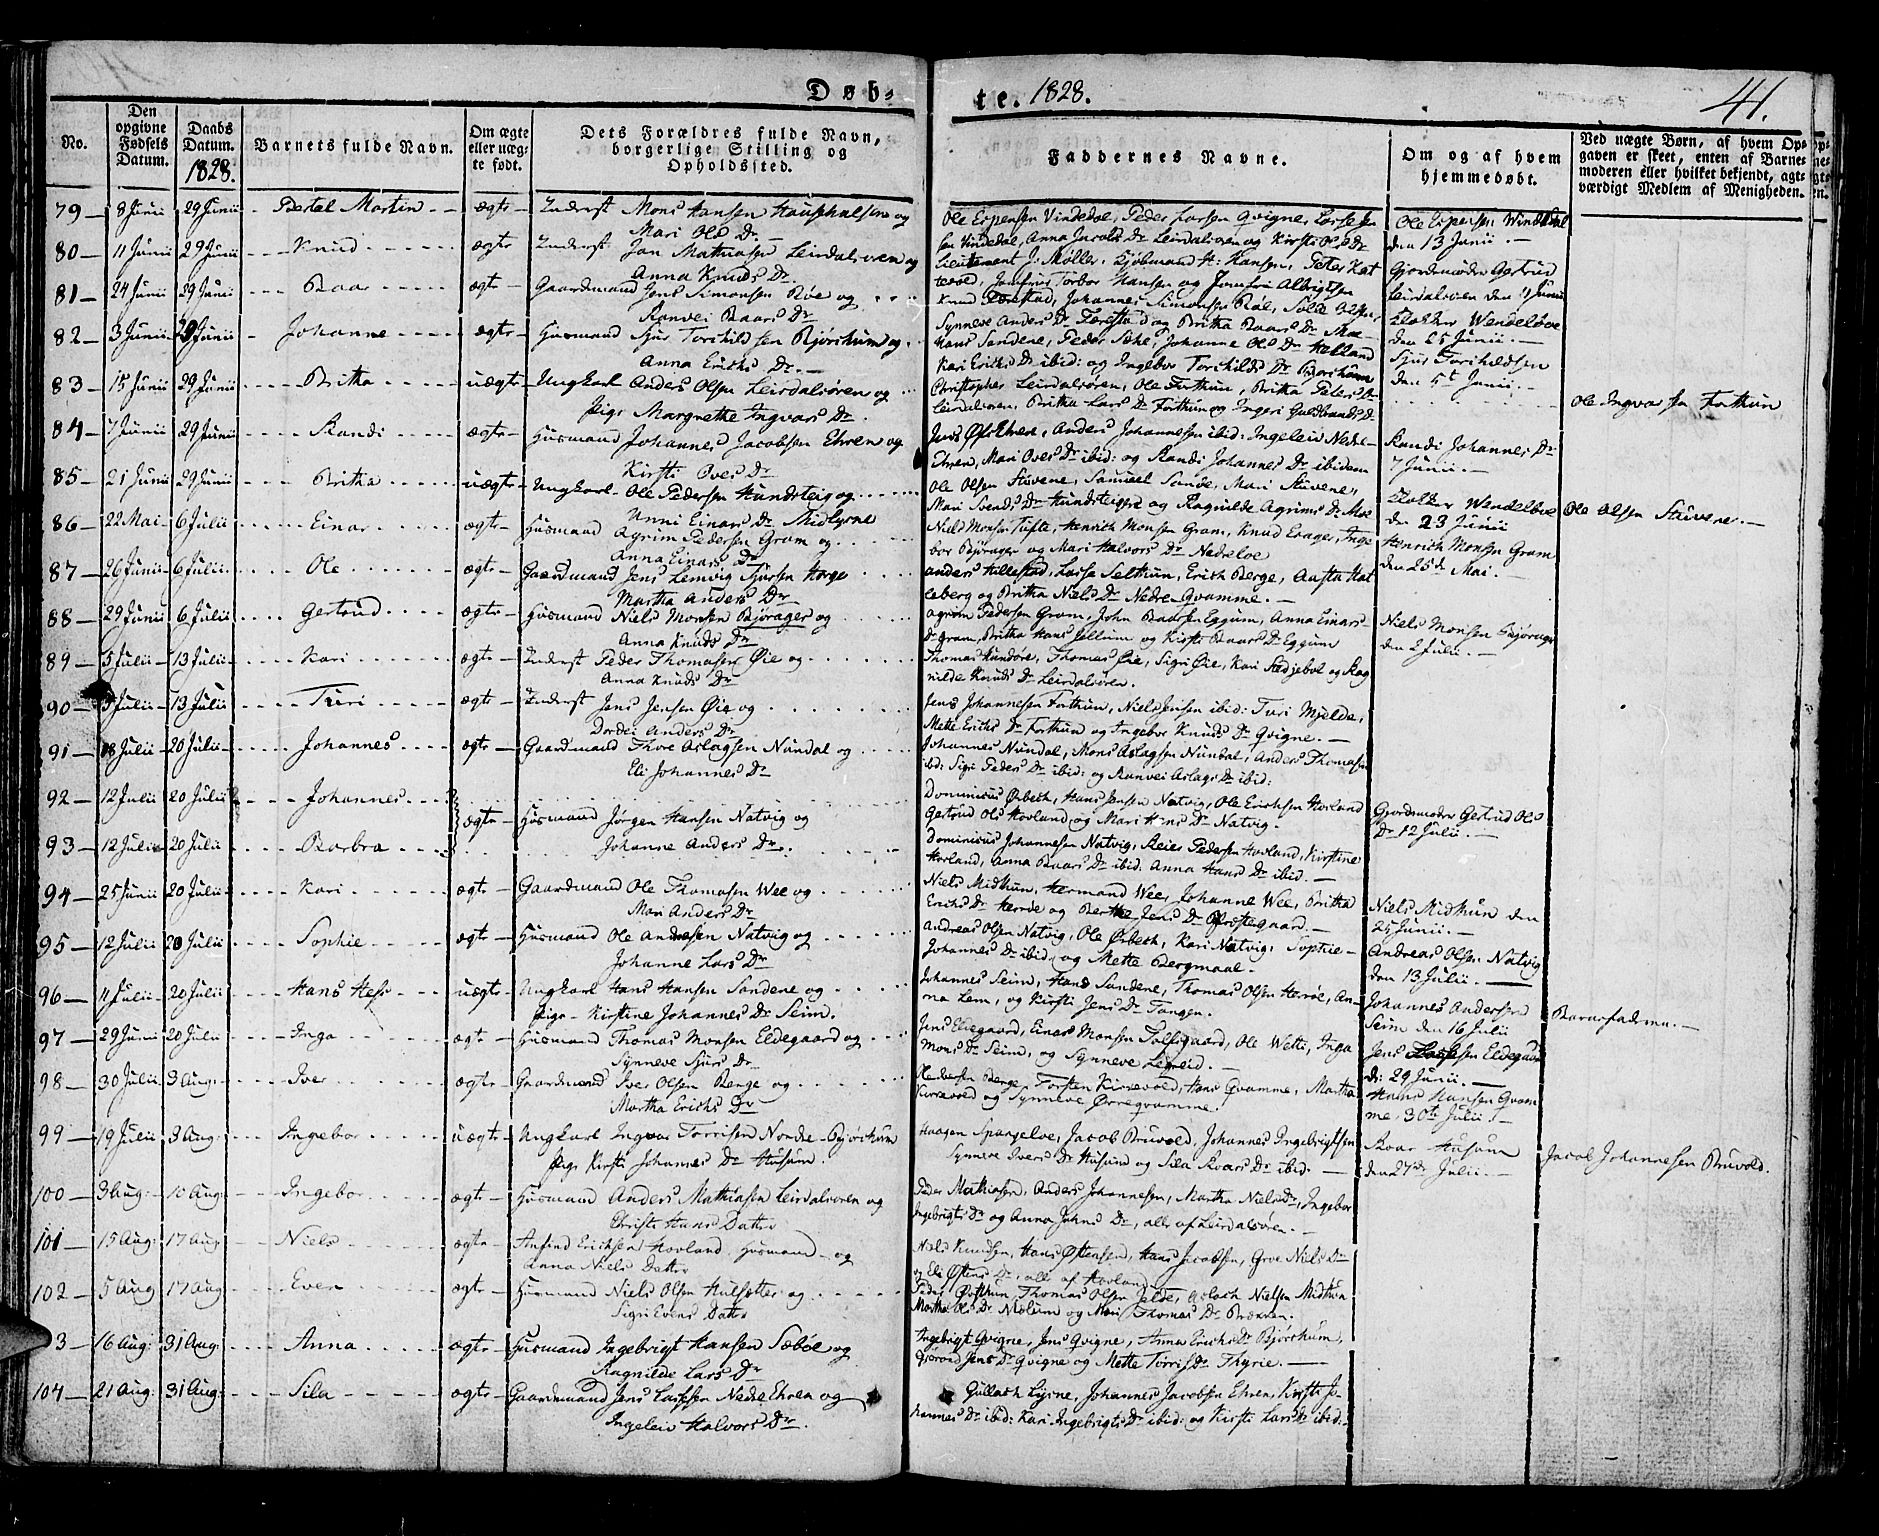 Døb-
te. 1828.
41.
No.
Den opgivne Fødsels Datum.
Daabs Datum. 1828.
Barnets fulde Navn.
Om ægte eller uægte født.
Dets Forældres fulde Navn, borgerlige Stilling og Opholdssted.
Faddernes Navne.
Om og af hvem hjemmedøbt.
Ved uægte Børn, af hvem Opgaven er skeet, enten af Barnemoderen eller hvilket bekjendt, agtværdigt Medlem af Menigheden.
79 8 Junii 29 Junii Bertel Martin ægte Inderst Mons Hansen og
Mari Ols Dr
Ole Espensen Vindedal, Peder Larsen Qvigne, Lasse Jen
sen Vindedal, Anna Jacobs Dr Leirdalsøren og Kirsti Ols Dr
Ole Espensen Windedal
den 13 Junii.
80 11 Junii 29 Junii Knud ægte Inderst Jon Mathiasen Leirdalsøren og
Anna Knuds Dr
Lieutenant J: Møller, Kjøbmand H: Hansen, Peter
Jomfrue Torbor Hansen og Jomfru Albrigtsen
Gjordemoder Gertrud
Leirdalsøren den 11 Junii
81 24 Junii 29 Junii Baar ægte Gaardmand Jens Simonsen Bøe og
Ranvei Baars Dr
Knud Færestad, Johannes Simonsen
Synneve Anders Dr Færestad og Britha Baars Dr Moe
Klokker Wendelboe
den 25 Junii.
82 3 Junii 29 Junii Johanne ægte Husmand Sjur Torchildsen Bjørchum og
Anna Erichs Dr
Hans Sandene, Peder Sæhe, Johanne Ols Dr Hælland
Kari Erichs Dr ibid: og Ingebor Torchilds Dr Bjørchum
Sjur Torchildsen
den 5t Junii.
83 15 Junii 29 Junii Britha uægte Ungkarl Anders Olsen Leirdalsøren og
Pige Margrethe Ingvars Dr
Christopher Leirdalsøren, Ole Forthun, Britha Peters Dr
Leirdalsøren, Britha Lars Dr Forthun og Ingeri Guldbrands Dr
Ole Ingvarsen Forthun
84 7 Junii 29 Junii Randi ægte Husmand Johannes Jacobsen Ehren og
Kirsti Oves Dr
Jens Ehren, Anders Johannesen ibid: Ingeleiv Nedre-
Ehren, Mari Oves Dr ibid: og Randi Johannes Dr ibidem
Randi Johannes Dr
7 Junii.
85 21 Junii 29 Junii Britha uægte Ungkarl Ole Pedersen Hundsteig og
Unni Einars Dr Midlyrne
Ole Olsen Stuvene, Samuel Sande, Mari Stuvene,
Mari Svends Dr Hundsteigen og Ragnilde Agrims Dr Moe
Klokker Wendelboe
den 23 Junii
Ole Olsen Stuvene.
86 22 Mai 6 Julii Einar ægte Husmand Agrim Pedersen Gram og
Anna Einars Dr
Niels Monsen Tufte, Henrich Monsen Gram, Knud Erager, Inge
bor Bjørager og Mari Halvors Dr Nedreloe
Henrich Monsen Gram
den 25de Mai.
87 26 Junii 6 Julii Ole ægte Gaardmand Jens Lemvig Sjursen Horge
Martha Anders Dr
Anders Hillestad, Lasse Selthun, Erich Berge,
og Britha Niels Dr Nedre Qvamme.
88 29 Junii 6 Julii Gertrud ægte Husmand Niels Monsen Bjørager og
Anna Knuds Dr
Agrim Pedersen Gram, John Baarsen Eggum, Anna Einars-
Dr Gram, Britha Hans og Kirsti Baars Dr Eggum
Niels Monsen Bjørager
den 2 Julii.
89 5 Julii 13 Julii Kari ægte Inderst Peder Thomasen Øie og
Anna Knuds Dr
Thomas Hundøre, Thomas Øie, Sigri Øie, Kari og Rag
nilde Knuds Dr Leirdalsøren.
90 Julii 13 Julii Turi ægte Inderst Jens Jensen Øie og
Dordei Anders Dr
Jens Johannesen Forthun, Niels Jensen ibid: Turi Mjelde,
Mette Erichs Dr Forthun og Ingebor Knuds Dr Qvigne.
91 Julii 20 Julii Johannes ægte Gaardmand Thoe Aslagsen Nundal og
Eli Johannes Dr
Johannes Nundal, Mons Aslagsen Nundal, Anders Thomasen
ibid: Sigri Peders Dr ibid: og Ranvei Aslags Dr ibid:
92 12 Julii 20 Julii Johannes
ægte Husmand Jørgen Hansen Natvig og
Dominicus Ørbech, Hans Jensen Natvig, Ole Erichsen Hovland
Gertrud Ols Hovland og Mari Hans Dr Natvig.
Gjordemoder Gertrud Ols
Dr 12 Julii.
93 12 Julii 20 Julii Barbra
Johanne Anders Dr.
Dominicus Johannesen Natvig, Reier Pedersen Hovland, Kirstine
Hovland, Anna Baars Dr ibid. Anna Hans Dr ibid.
94 25 Junii 20 Julii Kari ægte Gaardmand Ole Thomasen Wee og
Mari Anders Dr
Niels Midthun, Hermand Wee, Johanne Wee, Britha
Erichs Dr Herøe og Berthe Jens Dr Prestegaard.
Niels Midthun den
25 Junii.
95 12 Julii 20 Julii Sophie ægte Husmand Ole Andresen Natvig og
Johanne Lars Dr
Andreas Olsen Natvig, Ole Ørbech, Kari Natvig, Sophie
Johannes Dr ibid: og Mette Bergmaal.
Andreas Olsen Natvig
den 13 Julii.
96 11 Julii 20 Julii Hans Hess uægte Ungkarl Hans Hansen Sandene og
Pige Kirstine Johannes Dr Seim.
Johannes Seim, Hans Sandene, Thomas Olsen Herøe, An-
na Lem, og Kirsti Jens Dr Tangen.
Johannes Andersen
Seim den 16 Julii
Barnefaderen.
97 29 Junii 20 Julii Inga ægte Husmand Thomas Monsen Eldegaard og
Synneve Sjurs Dr
Jens Eldegaard, Einar Monsen Wetti, Inga
Mons Dr Seim, og Synneve Lægreid.
Jens Eldegaard
d: 29 Junii.
98 30 Julii 3 Aug: Iver ægte Gaardmand Iver Olsen Berge og
Martha Erichs Dr
Berge, Torsten Kirrevold, Hans Qvamme, Martha
Kirrevold og Synneve Ørreqvamme.
Hans Hansen Qvam
me 30te Julii
99 19 Julii 3 Aug: Ingebor uægte Ungkarl Ingvar Torrisen Nordre-Bjørchum
Pige Kirsti Johannes Dr Husum.
Haagen Spangeloe, Jacob Bruvold, Johannes Ingebrigtsen
Synneve Ivers Dr Husum og Sila Roars Dr ibid.
Roar Husum
den 27de Julii.
Jacob Johannesen Bruvold.
100 3 Aug: 10 Aug: Ingebor ægte Husmand Anders Mathiasen Leirdalsøren og
Christi Hans Datter
Peder Mathiasen, Anders Johannesen, Martha Niels Dr, Ingebor
Ingebrigts Dr og Anna Johns Dr, alle af Leirdalsøren.
101 15 Aug: 17 Aug Niels ægte Anfind Erichsen Hovland, Husmand og
Anna Niels Datter
Niels Knudsen, Hans Østensen, Hans Jacobsen, Groe Niels Dr
og Eli Østens Dr, alle af Hovland.
102 5 Aug 17 Aug Even ægte Husmand Niels Olsen Hulsætter og
Sigri Evens Datter
Peder Østthun, Thomas Olsen Jelde, Aslach Nielsen Midthun
Martha Ols Dr Mælum og Mari Thomas Dr Brækken.
3 16 Aug: 31 Aug: Anna ægte Husmand Ingebrigt Hansen Sæbøe og
Ragnilde Lars Dr
Ingebrigt Qvigne, Jens Qvigne, Anna Erichs Dr Bjørchum,
Jens Dr Qvigne og Mette Torris Dr Thyrie.
104 21 Aug: 31 Aug: Sila ægte Gaardmand Jens Lassesen Nedre Ehren og
Ingeleiv Halvors Dr
Gullach Lysne, Johannes Jacobsen Ehren, Kirsti Jo
hannes Dr ibid: Kari Ingebrigts Dr ibid: og Kirsti Lars Dr ibid: